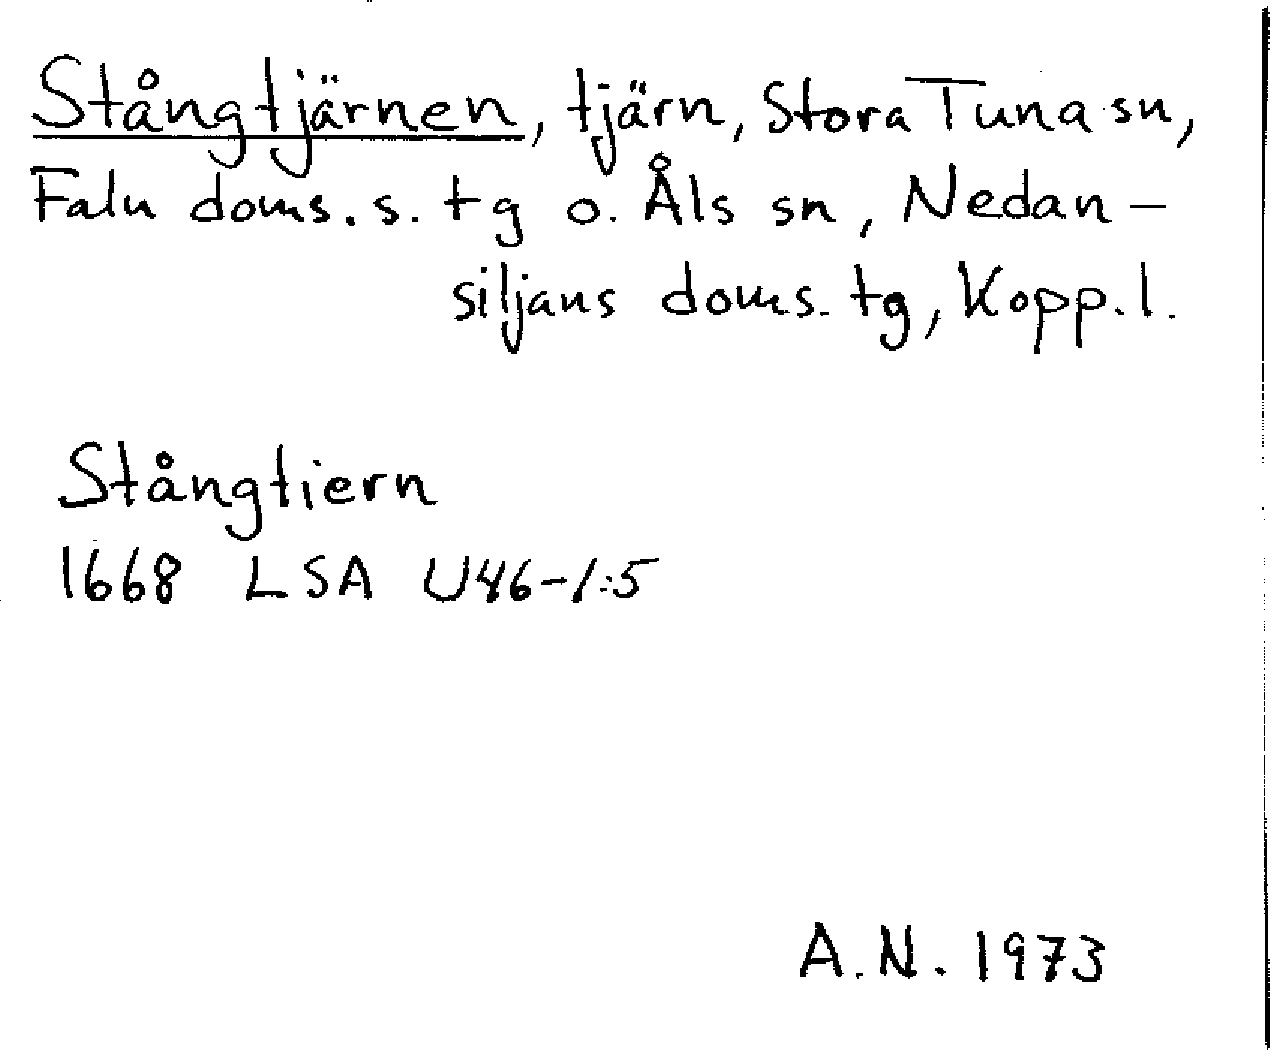 Stångtjärnen, tjärn, Stora Tuna sn,
Falu doms. s. tg o. Åls sn, Nedan-
siljans doms. tg, Kopp. l.
Stångtiern
1668 LSA U46-1:5
A.N. 1973